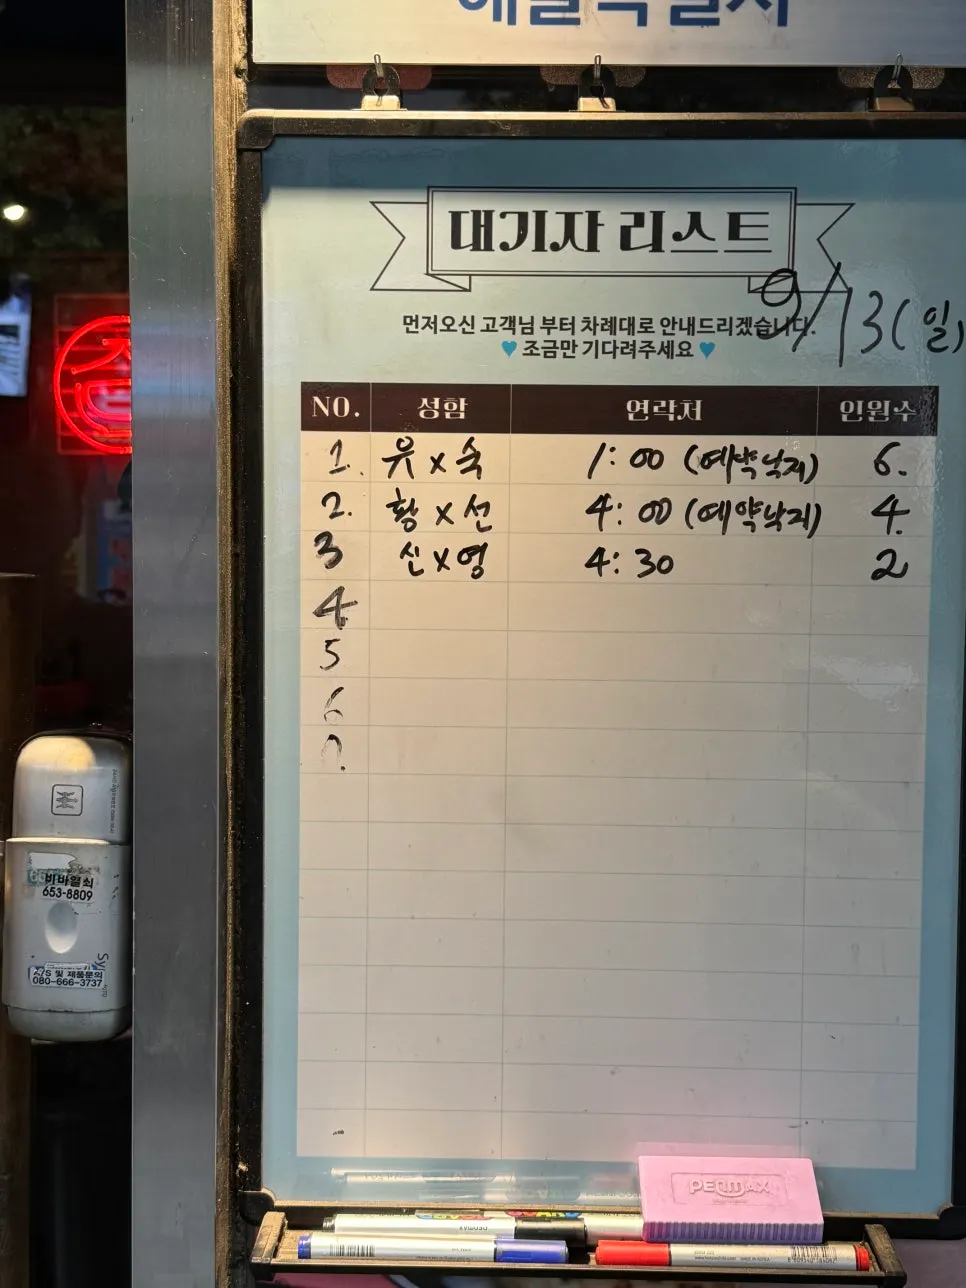 대기자 리스트
9/13(일)
먼저오신 고객님 부터 차례대로 안내드리겠습니다.
♥ 조금만 기다려주세요 ♥
NO. 성함 연락처 인원수
1. 유x숙 1:00 (예약낙지) 6.
2. 황x선 4:00 (예약낙지) 4.
3 신x영 4:30 2
4
5
6
7.
바바열쇠
653-8809
A/S 및 제품문의
080-666-3737
PENMAX